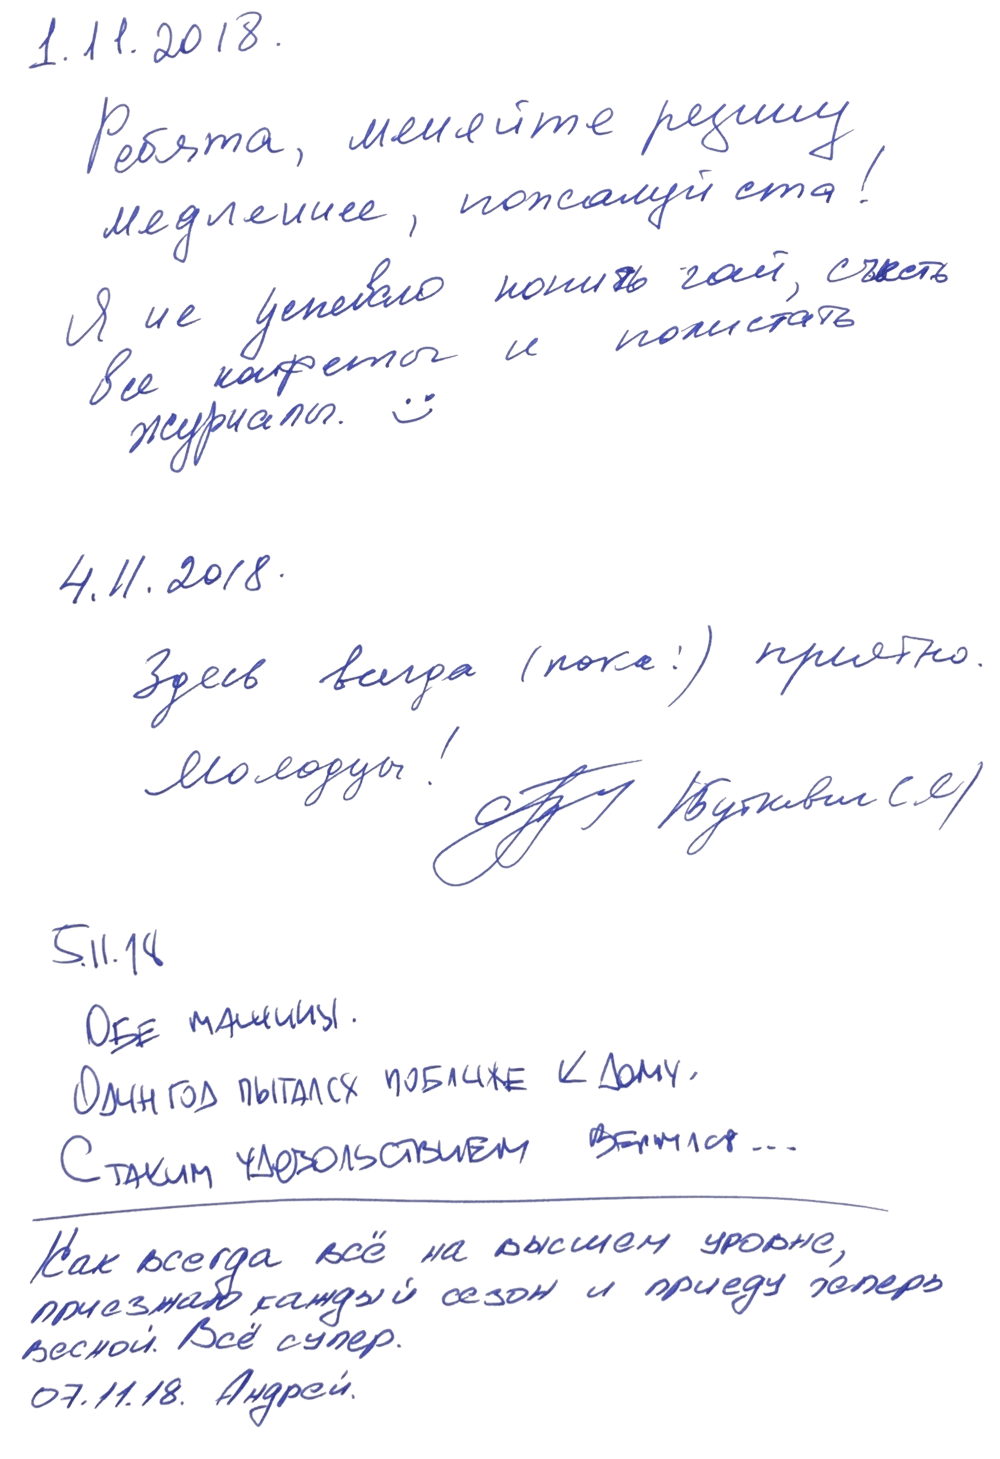 1.11.2018.
Ребята, меняйте резину
медленнее, пожалуйста!
Я не успеваю попить чай, съесть
все конфеты и полистать
журналы.
4.11.2018.
Здесь всегда (пока!) приятно.
Молодцы!
5.11.18
Обе машины.
Один год пытался поближе к дому.
С таким удовольствием вернулся...
Как всегда всё на высшем уровне,
приезжаю каждый сезон и приеду теперь
весной. Всё супер.
07.11.18. Андрей.